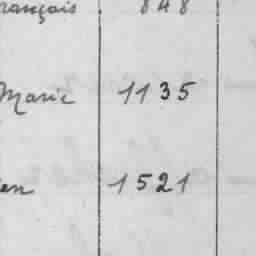 rançais 848
Marie 1135
en 1521